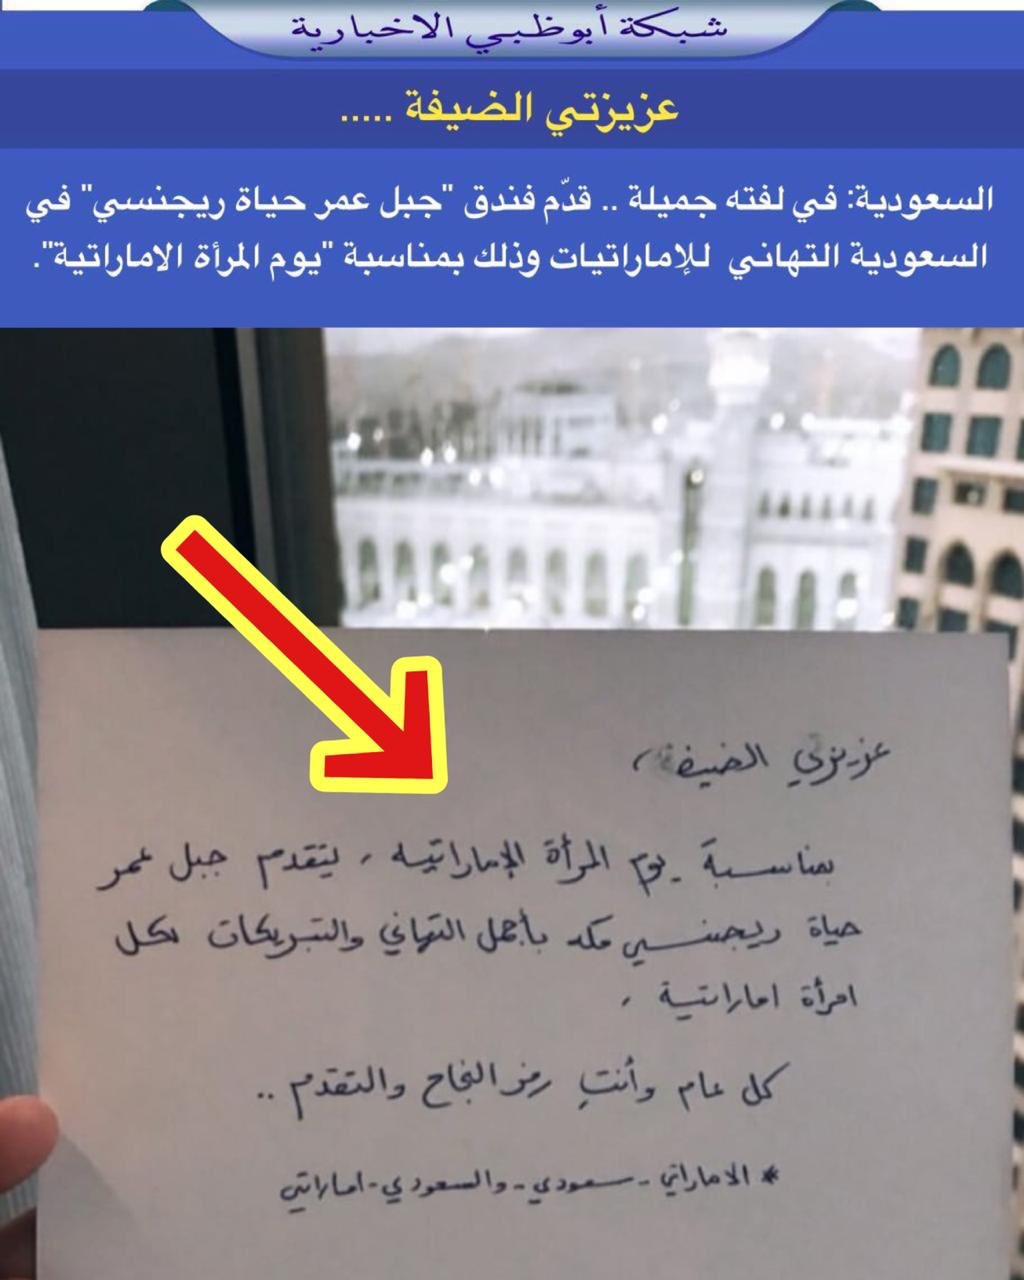 شبكة أبوظبي الاخبارية
عزيزتي الضيفة .....
السعودية: في لفته جميلة .. قدّم فندق "جبل عمر حياة ريجنسي" في
السعودية التهاني للإماراتيات وذلك بمناسبة "يوم المرأة الاماراتية".
عزيزتي الضيفة ،
بمناسبة يوم المرأة الإماراتيه ، يتقدم جبل عمر
حياة ريجنسي مكه بأجمل التهاني والتبريكات لكل
امرأة اماراتية ،
كل عام وأنتِ رمز النجاح والتقدم ..
* الاماراتي - سعودي - والسعودي - اماراتي